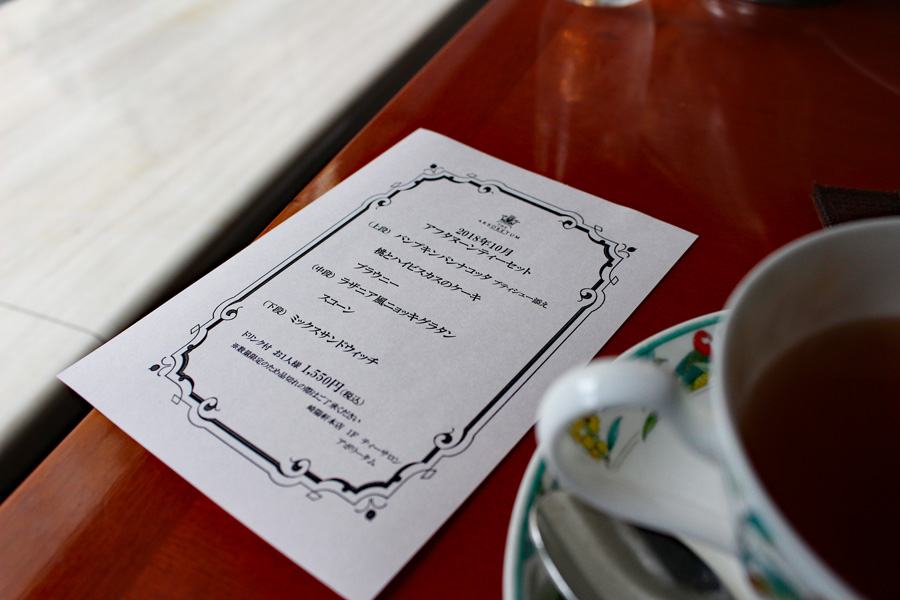 ARBORETUM
2018年10月
アフタヌーンティーセット
(上段) パンプキンパンナコッタ プティシュー添え
桃とハイビスカスのケーキ
ブラウニー
(中段) ラザニア風ニョッキグラタン
スコーン
(下段) ミックスサンドウィッチ
ドリンク付 お1人様 1,550円(税込)
※数量限定のため品切れの際はご了承ください
崎陽軒本店 1F ティーサロン
アボリータム